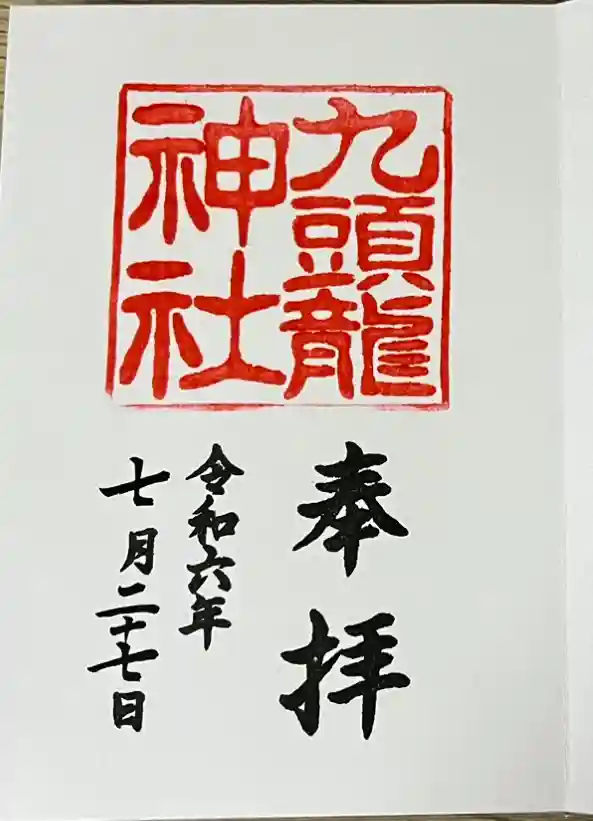 九頭龍
神社
奉拝
令和六年
七月二十七日